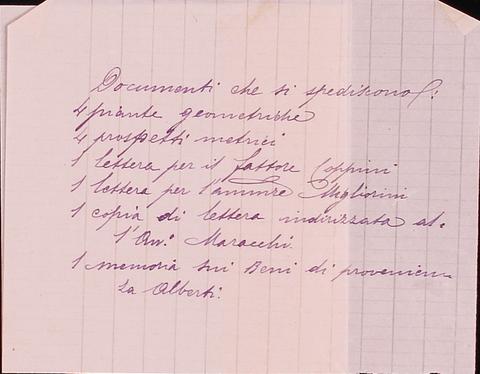 Documenti che si spediscono:
4 piante geometriche
4 prospetti metrici
1 lettera per il fattore Coppini
1 lettera per l'ammre Migliorini
1 copia di lettera indirizzata al=
l'Avv. Maracchi.
1 memoria sui Beni di provenien=
za Alberti.